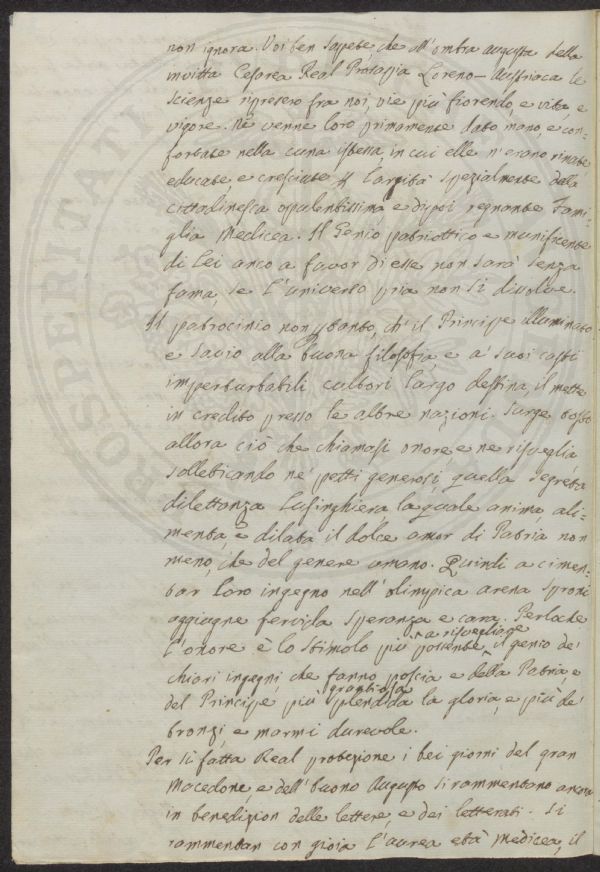 non ignora. Voi ben sapete, che all'ombra augusta della
invitta Cesarea Real Prosapia Loreno-Austriaca le
scienze ripresero fra noi, vie più fiorendo, e vita, e
vigore. Nè venne loro primamente dato mano, e con=
fortate nella cuna istessa, in cui elle n'erano rinate
educate, e cresciute largità spezialmente della
cittadinesca opulentissima, e dipoi regnante Fami=
glia Medicea. Il Genio patriottico e munificente
di Lei anco a favor di esse non sarà senza
fama, se l'universo pria non si dissolve.
Il patrocinio non pertanto, ch'il Principe illuminato
e savio alla buona filosofia, e a' suoi casti
imperturbabili cultori largo destina, il mette
in credito presso le altre nazioni. Surge tosto
allora ciò che chiamasi onore e ne risveglia
solleticando ne' petti generosi, quella segreta
dilettanza lusinghiera, la quale anima, ali=
menta, e dilata il dolce amor di Patria non
meno, che del genere umano. Quindi a cimen=
tar loro ingegno nell'olimpica arena sproni
aggiugne fervida speranza e cara. Perloche
l'onore è lo stimolo più possente a risvegliare il genio de'
chiari ingegni, che fanno poscia e della Patria, e
del Principe più grandiosa splendida la gloria, e più de'
bronzi, e marmi durevole.
Per sì fatta Real protezione i bei giorni del gran
Macedone, e dell'buono Augusto si rammentano ancora
in benedizion delle lettere, e dei letterati. Si
rammentan con gioia l'aurea età Medicea, il
PROSPERITATI